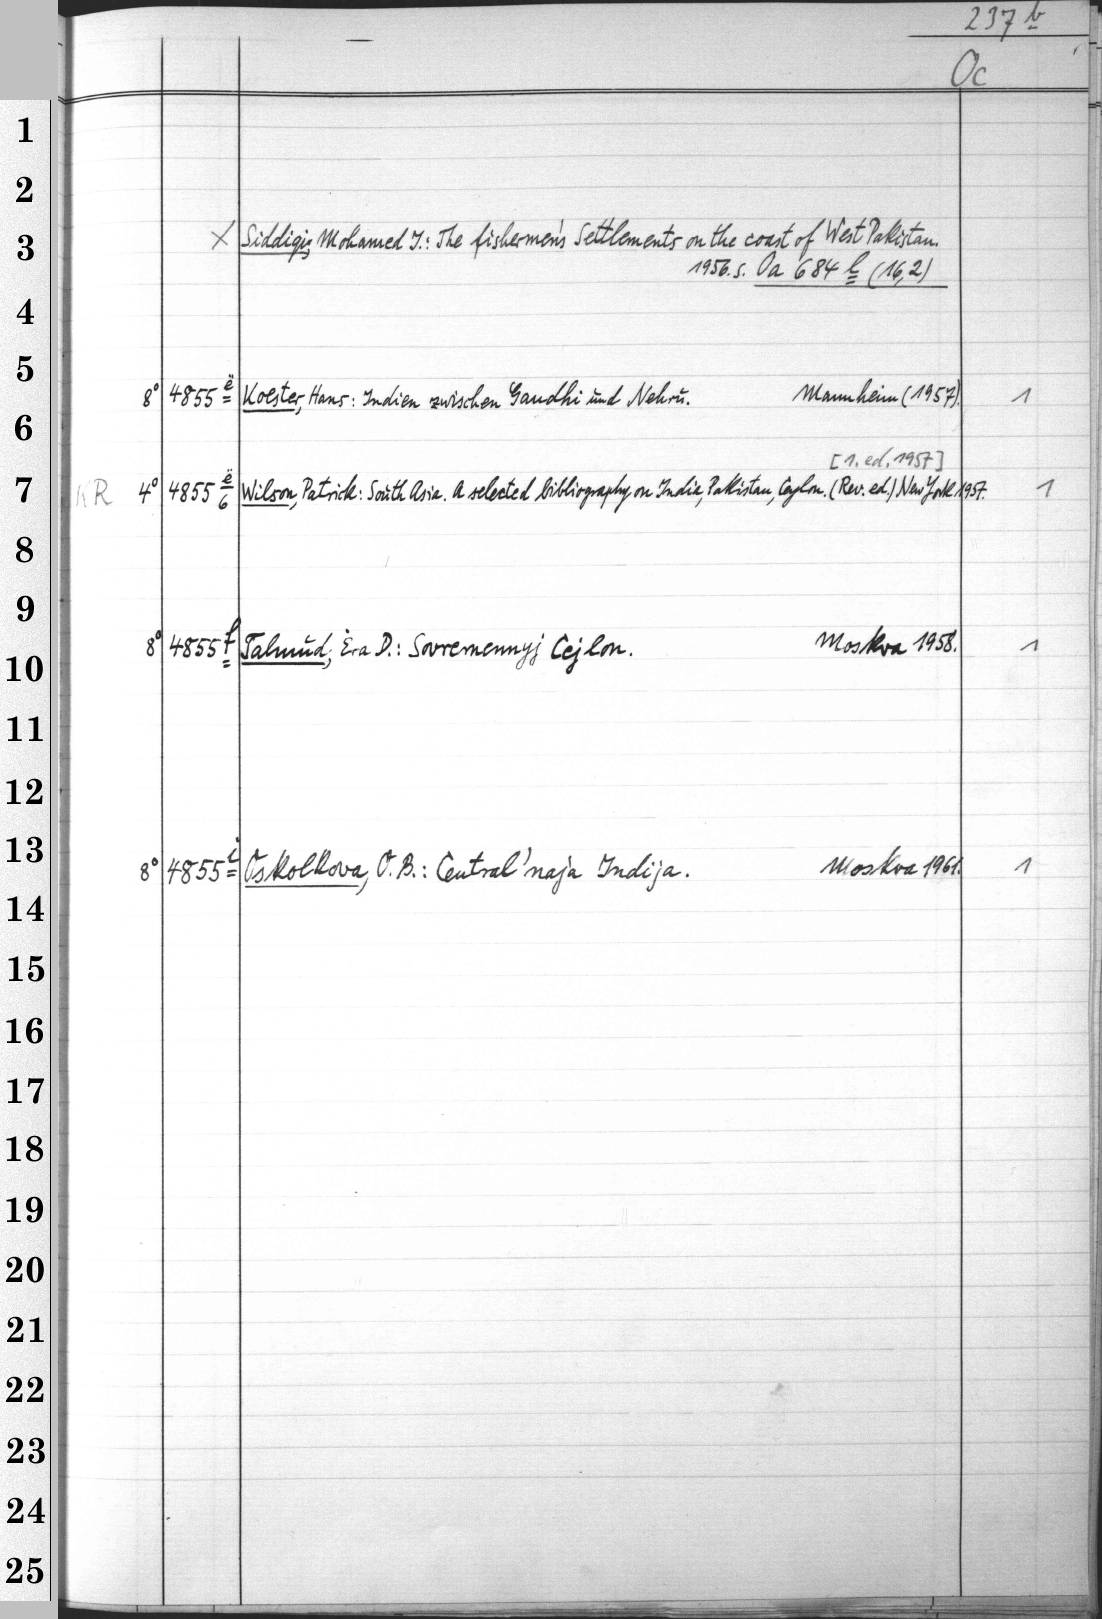 237 b
Oc
1
2
3 X Siddiqi, Mohamed I.: The fishermen's Settlements on the coast of West Pakistan.
1956. s. Oa 684 l (16,2)
4
5
8° 4855 ë Koester, Hans: Indien zwischen Gandhi und Nehru. Mannheim (1957). 1
6
[1. ed. 1957]
7 KR 4° 4855 ë/6 Wilson, Patrick: South Asia. A selected bibliography on India, Pakistan, Ceylon. (Rev. ed.) New York 1957. 1
8
9
8° 4855 f Talmud, Ėra D.: Sovremennyj Cejlon. Moskva 1958. 1
10
11
12
13
8° 4855 i Oskolkova, O. B.: Central'naja Indija. Moskva 1961. 1
14
15
16
17
18
19
20
21
22
23
24
25